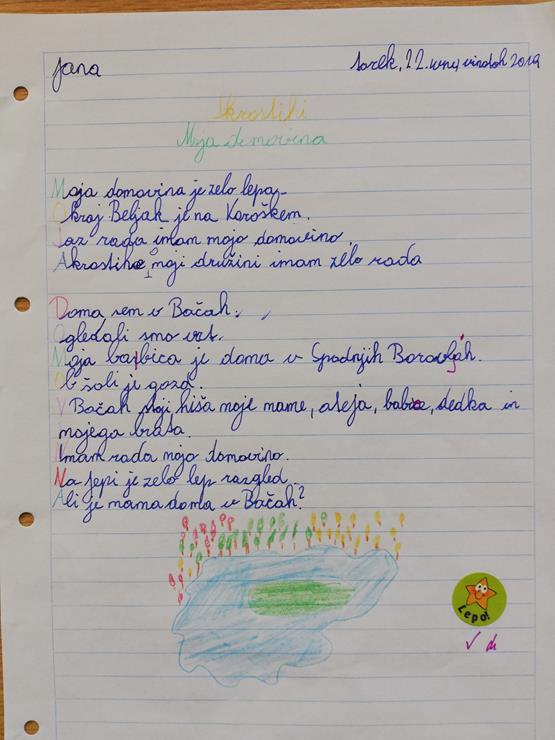 Jana
torek, 22. 2019
Akrostihi
Moja domovina
Moja domovina je zelo lepa.
Okraj Beljak je na Koroškem.
Jaz rada imam mojo domovino.
Akrostihe, moji družini imam zelo rada
Doma sem v Bačah.
Ogledali smo vrt.
Moja babica je doma v Spodnjih Borovljah.
Ob šoli je gozd.
V Bačah stoji hiša moje mame, ateja, babice, dedka in
mojega brata.
Imam rada mojo domovino.
Na Jepi je zelo lep razgled.
Ali je mama doma v Bačah?
Lepo!